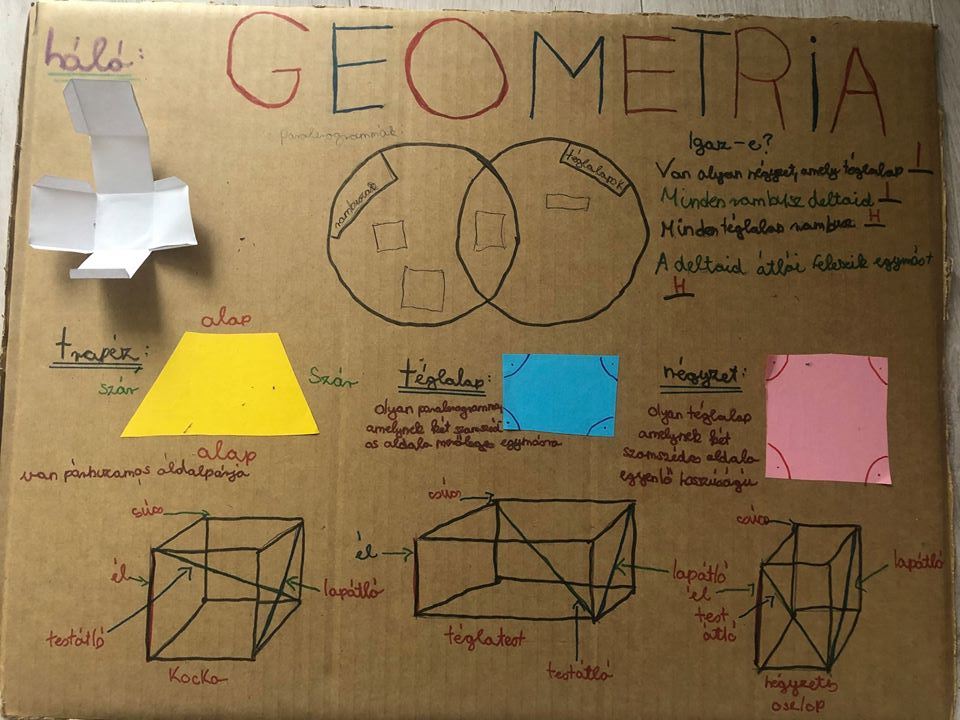 háló:
GEOMETRiA
rombuszok
téglalapok
Igaz-e?
Van olyan négyzet, amely téglalap I
Minden rombusz deltoid I
Minden téglalap rombusz H
A deltoid átlói felezik egymást
H
trapéz:
alap
szár
Szár
alap
van párhuzamos oldalpárja
téglalap:
Olyan paralelogramma,
amelynek két szomszéd
os oldala merőleges egymásra
négyzet:
Olyan téglalap
amelynek két
szomszédos oldala
egyenlő hosszúságú
csúcs
él
lapátló
testátló
Kocka
csúcs
él
lapátló
téglatest
testátló
csúcs
lapátló
él
test
átló
négyzetes
oszlop